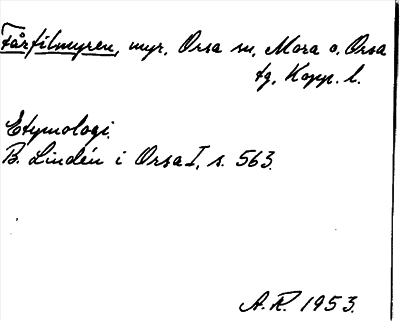 Fårfilmyren, myr, Orsa sn, Mora o. Orsa
tg, Kopp. l.
Etymologi.
B. Lindén i Orsa I, s. 563.
A.R. 1953.